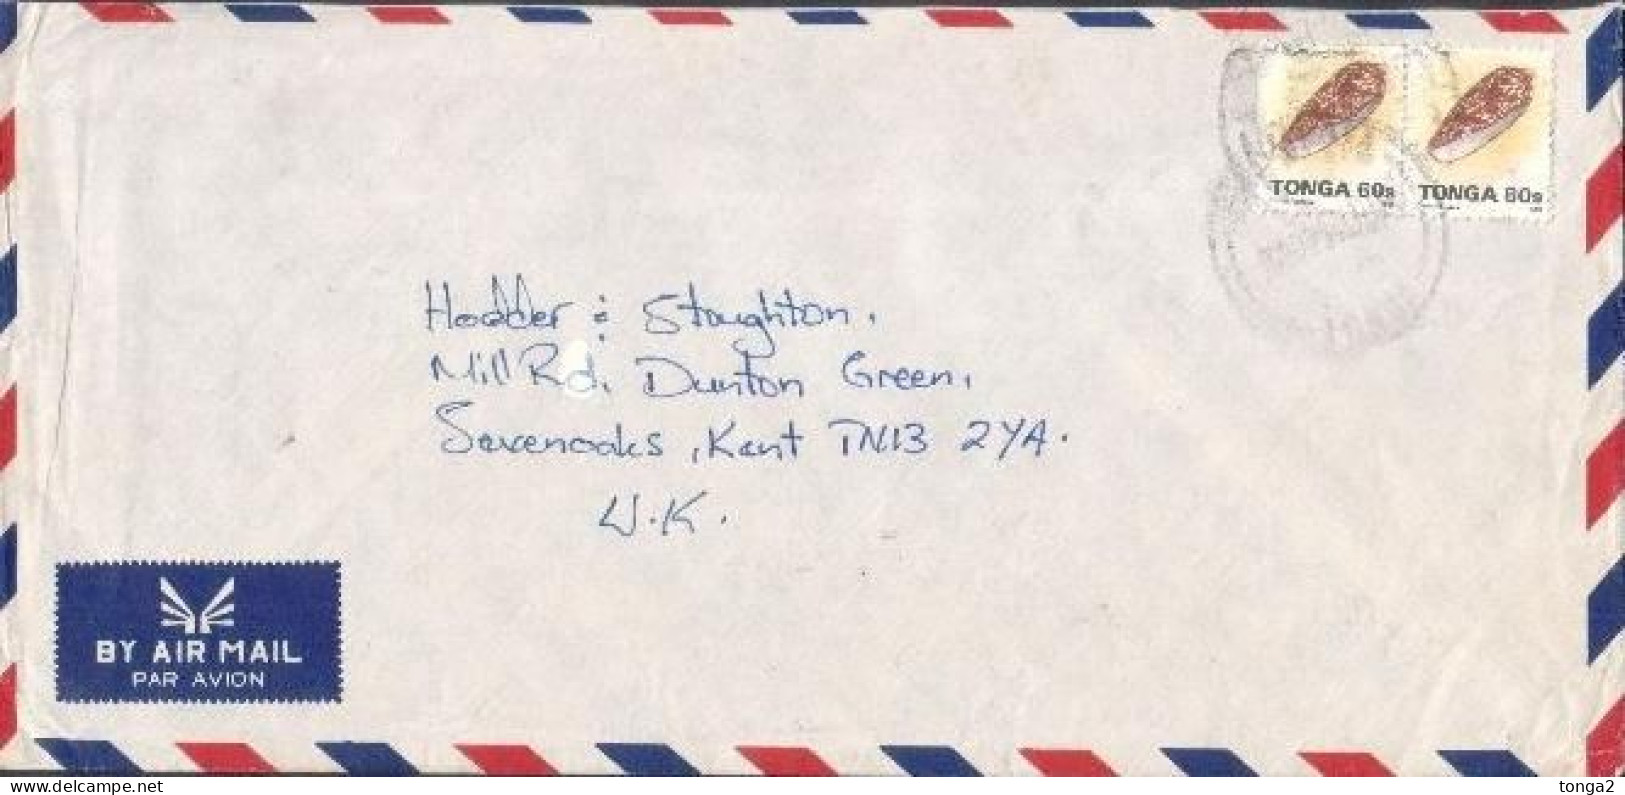 TONGA 60s TONGA 60s
Hodder & Stoughton,
Mill Rd, Dunton Green,
Sevenoaks, Kent TN13 2YA.
U.K.
BY AIR MAIL
PAR AVION
tonga2